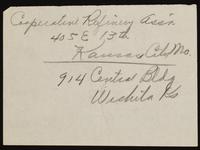 Cooperative Refinery Ass'n
405 E 13th
Kansas City, Mo.
914 Central Bldg
Wichita Ks